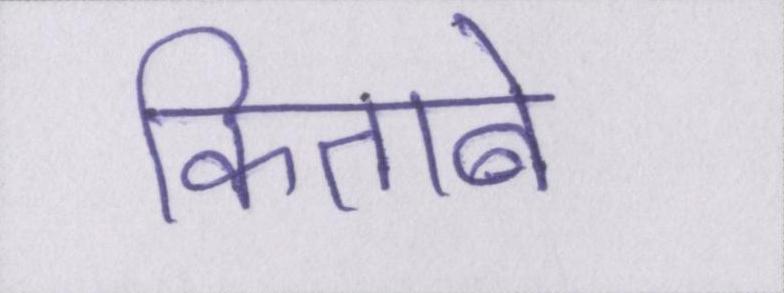 किताबे